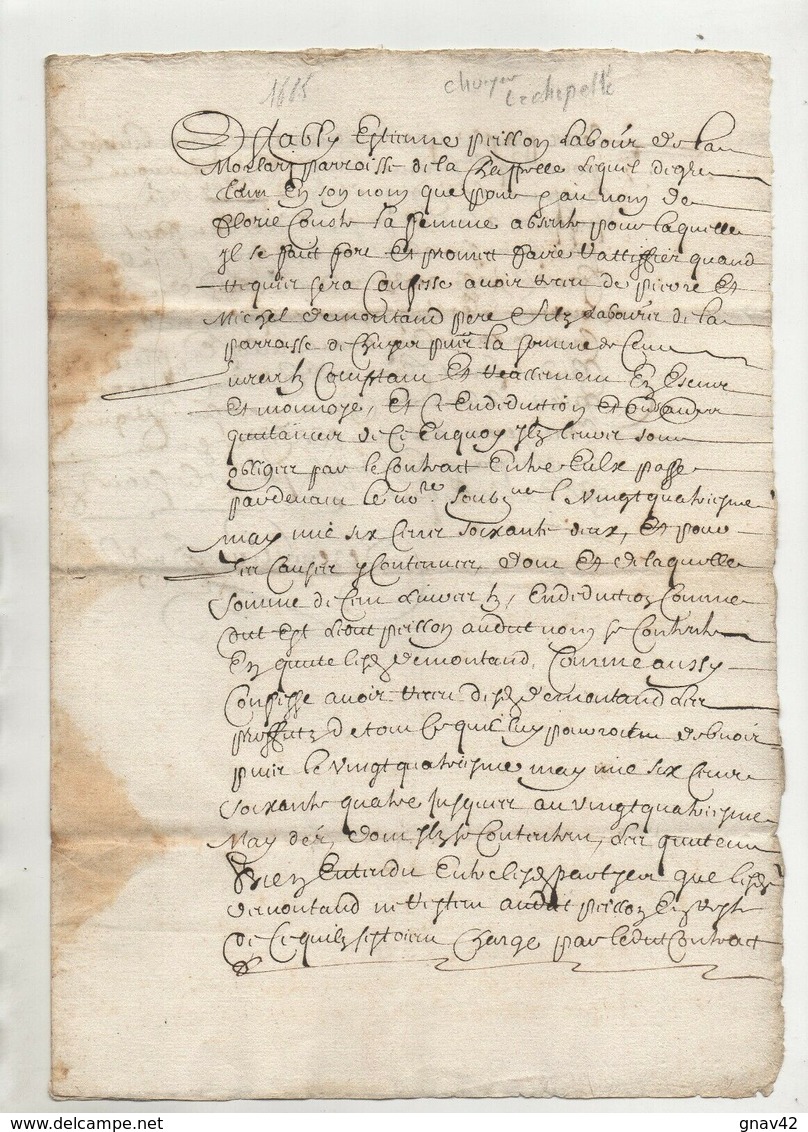 1665 chuyer
Lachapelle
Estably Estienne peillon Labour de la
parroisse de la Chappelle Lequel de gre
tam En son nom que pour & au nom de
florie Couste sa femme absente pour laquelle
Jl se faict fort Et promet faire Rattiffier quand
Requier sera Confesse avoir receu de pierre Et
Michel demontand pere & filz Labourr de la
parroisse de Chuyer puir la somme de Cent
livres tz Comptam Et reallement En Escuz
Et monnoye, Et Ce En deduction Et
quictances de Ce Enquoy Jlz luy sont
obliger par le Contract Entre Eulx passe
pardevant le nore. soubzne le vingt quatriesme
may mil six Cens soixante deux, Et pour
les Causes y Contenues, dont Et de laquelle
Somme de Cent Livres tz, En deduction Comme
dit Est ledit peillon audit nom se Contente
En quitte lesd demontand, Comme aussy
Confesse avoir receu desd demontand les
proffitz de tout Ce quil luy pourroient debvoir
puis le vingt quatriesme may mil six Cens
soixante quatre Jusques au vingt quatriesme
May der, dont Jl se Contente, & les quitte
Bien Entendu Entre lesd partyes que lesd
demontand ne restent audit peillon
de Ce quilz estoient Charge par ledit Contract
gnav42